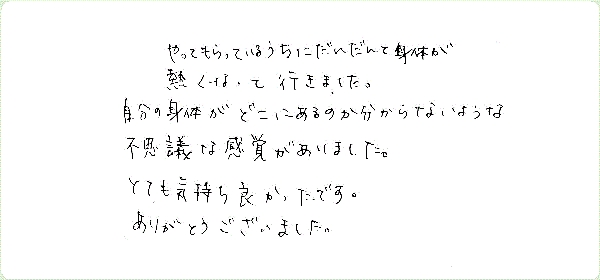 やってもらっているうちにだんだんと身体が
熱くなって行きました。
自分の身体がどこにあるのか分からないような
不思議な感覚がありました。
とても気持ち良かったです。
ありがとうございました。